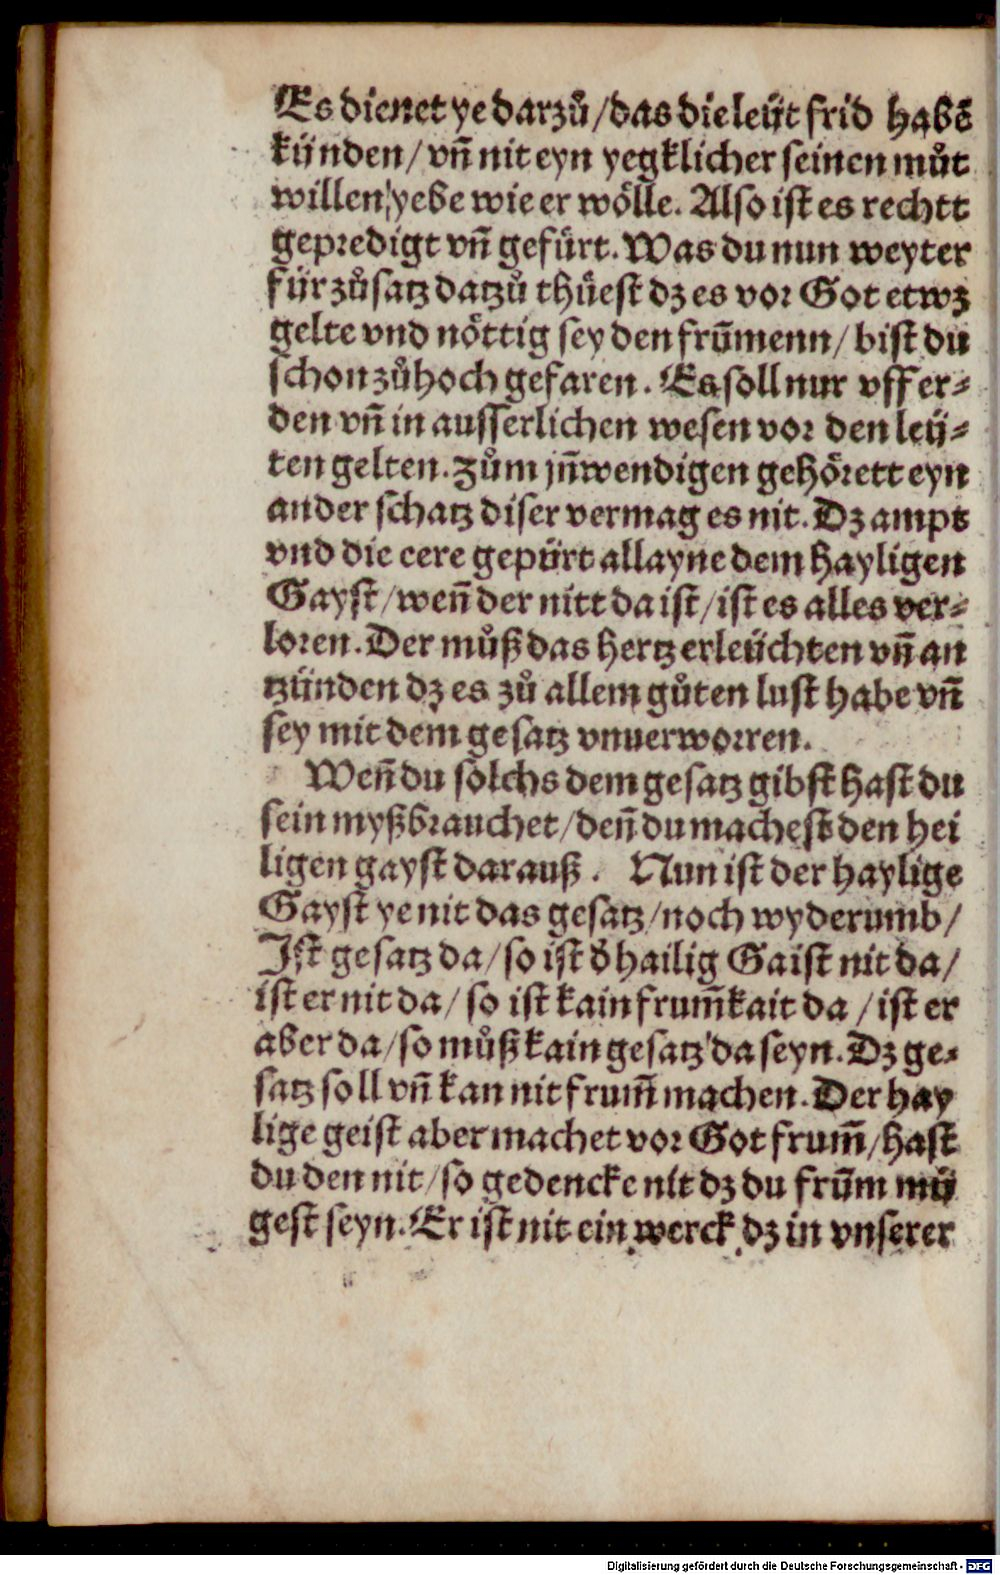 Es dienet ye darzů/das die leüt frid habē
künden/ vñ nit eyn yegklicher seinen můt
willen yebe wie er wölle. Also ist es rechtt
gepredigt vñ gefürt. Was du nun weyter
für zůsatz datzů thüest dz es vor Got etwz
gelte vnd nöttig sey den frūmenn/ bist du
schon zůhoch gefaren. Es soll nur vff er⸗
den vñ in ausserlichen wesen vor den leü⸗
ten gelten. Zům jñwendigen gehörett eyn
ander schatz diser vermag es nit. Dz ampt
vnd die eere gepürt allayne dem hayligen
Gayst/wen̄ der nitt da ist/ist es alles ver⸗
loren. Der můß das hertz erleüchten vñ an
tzünden dz es zů allem gůten lust habe vñ
sey mit dem gesatz vnuerworren.
Wen̄ du sölchs dem gesatz gibst hast du
sein myßbrauchet/den̄ du machest den hei
ligen gayst darauß. Nun ist der haylige
Gayst ye nit das gesatz/noch wyderumb/
Ist gesatz da/so ist d̄ hailig Gaist nit da/
ist er nit da/ so ist kain frum̄kait da / ist er
aber da/so můß kain gesatz da seyn. Dz ge⸗
satz soll vñ kan nit frum̄ machen. Der hay
lige geist aber machet vor Got frum̄/hast
du den nit/so gedencke nit dz du frūm mü
gest seyn. Er ist nit ein werck dz in vnserer
Digitalisierung gefördert durch die Deutsche Forschungsgemeinschaft - DFG